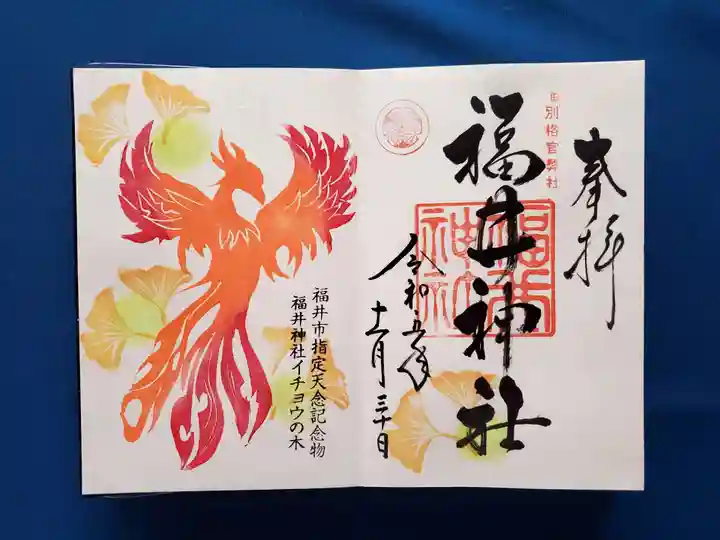 奉拝
旧別格官幣社
福井神社
福井神社
令和五年
十一月三十日
福井市指定天念記念物
福井神社イチョウの木